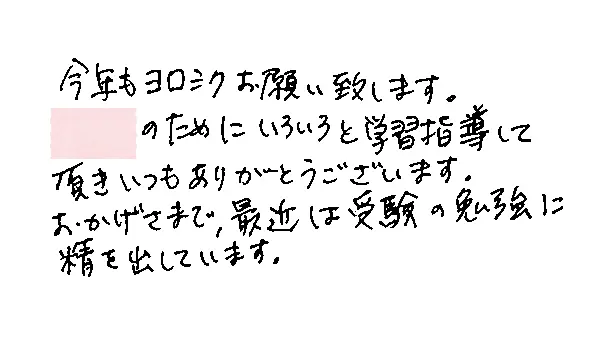 今年もヨロシクお願い致します。
のためにいろいろと学習指導して
頂きいつもありがとうございます。
おかげさまで,最近は受験の勉強に
精を出しています。